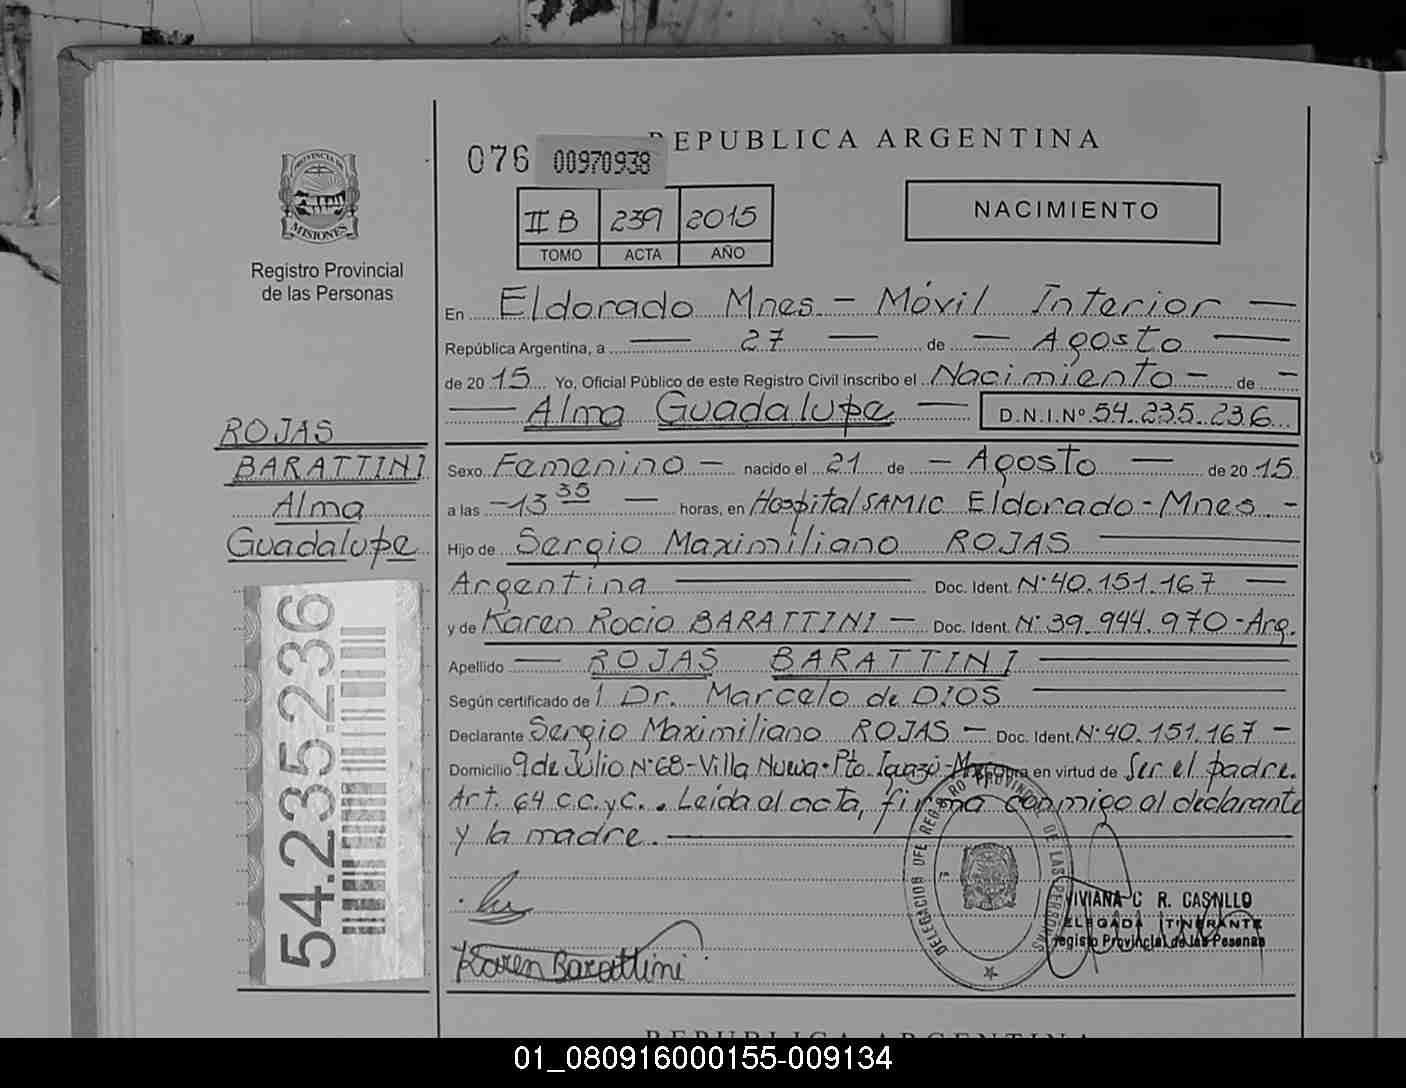 REPUBLICA ARGENTINA
076 00970938
II B 239 2015
TOMO ACTA AÑO
NACIMIENTO
PROVINCIA DE
MISIONES
Registro Provincial
de las Personas
En Eldorado Mnes. - Móvil Interior —
República Argentina, a — 27 — de — Agosto —
de 20 15 Yo, Oficial Público de este Registro Civil inscribo el Nacimiento - de -
— Alma Guadalupe — D.N.I.Nº 54.235.236
ROJAS
BARATTINI
Alma
Guadalupe
54.235.236
Sexo Femenino - nacido el 21 de - Agosto — de 20 15
a las - 13 35 — horas, en Hospital SAMIC Eldorado - Mnes. -
Hijo de Sergio Maximiliano ROJAS —
Argentina — Doc. Ident. Nº 40.151.167 —
y de Karen Rocio BARATTINI — Doc. Ident. Nº 39.944.970 - Arg.
Apellido — ROJAS BARATTINI —
Según certificado de l Dr. Marcelo de DIOS —
Declarante Sergio Maximiliano ROJAS - Doc. Ident. Nº 40.151.167 -
Domicilio 9 de Julio Nº 68 - Villa Nueva - Pto. Iguazú - Obra en virtud de Ser el padre.
Art. 64 C.C. y C.. Leída el acta, firma conmigo el declarante
y la madre. —
DELEGACION DEL REGISTRO PROVINCIAL DE LAS PERSONAS
VIVIANA C R. CASTILLO
DELEGADA ITINERANTE
Registo Provincial de las Pesonas
Karen Barattini
REPUBLICA ARGENTINA
01_080916000155-009134